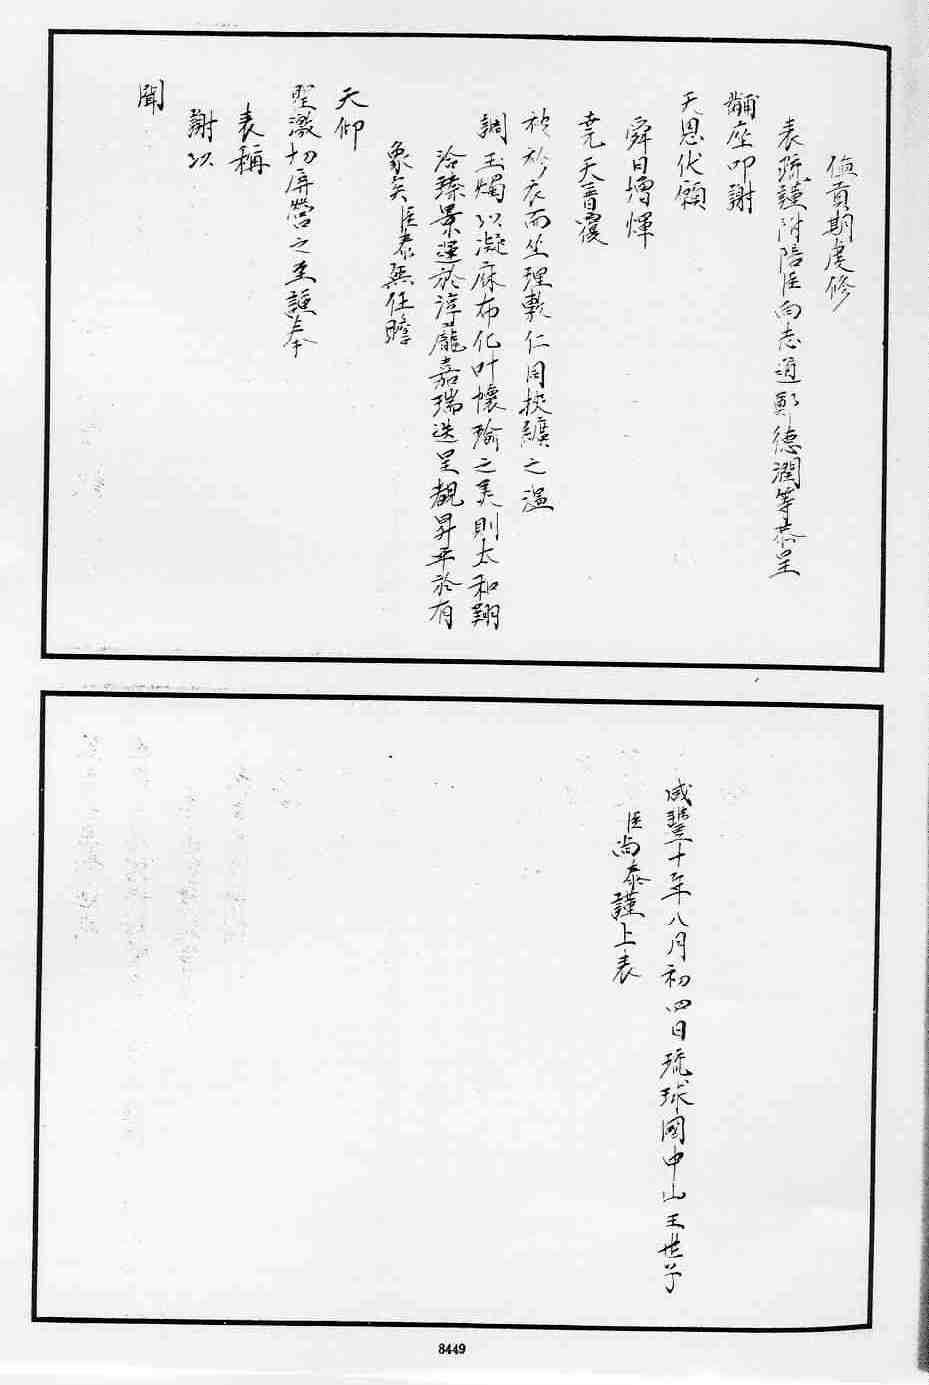 值貢期虔修
表疏謹附陪臣向志道鄭德潤等恭呈
黼座叩謝
天恩伏願
舜日增輝
堯天普覆
袗衣而坐理敷仁同挾纊之溫
調玉燭以凝庥布化叶懷瑜之美則太和翔
洽臻景運於淳龐嘉瑞迭呈覩昇平於有
象矣臣泰無任瞻
天仰
聖激切屏營之至謹奉
表稱
謝以
聞
咸豐十年八月初四日琉球國中山王世子
臣尚泰謹上表
8449